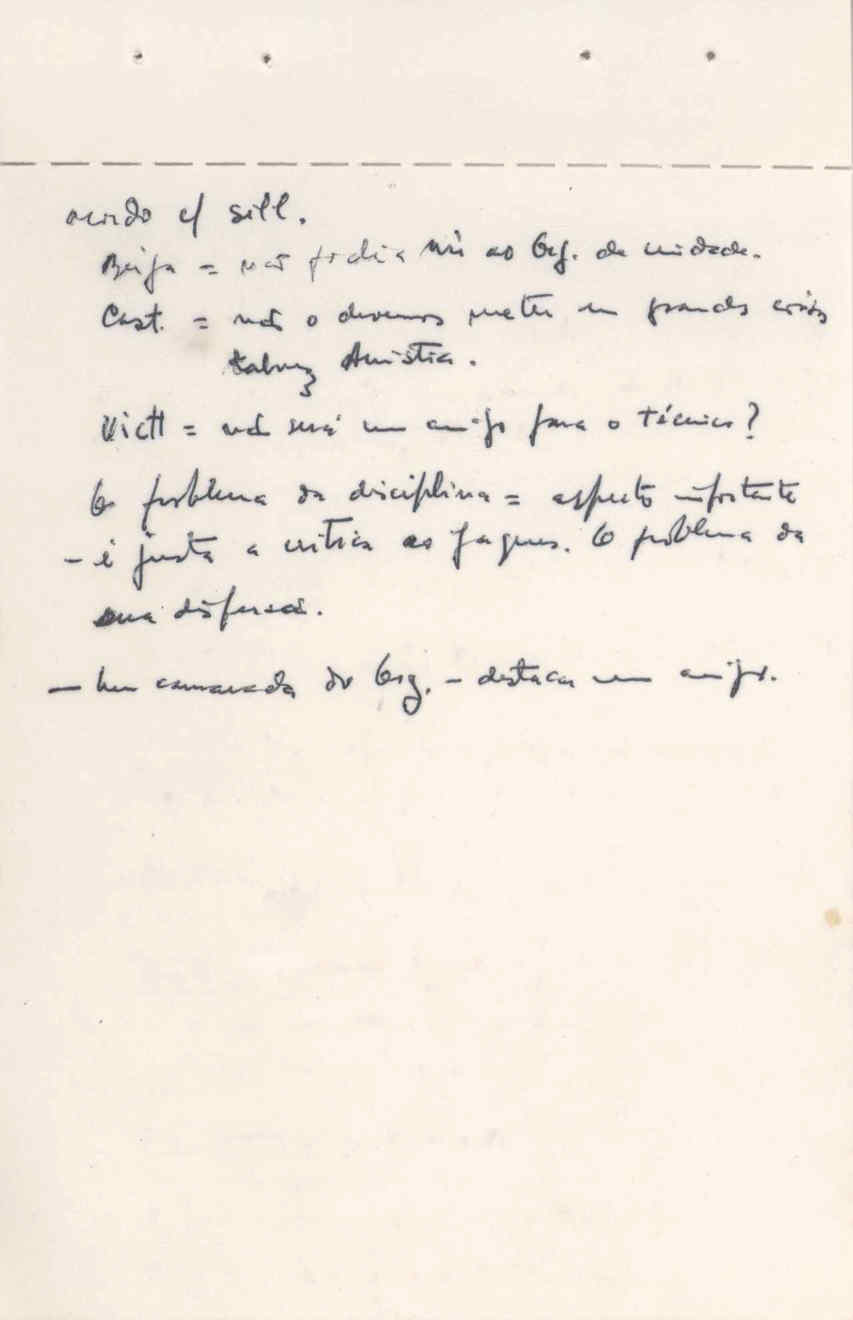 acordo c/ Sill.
= não podia vir ao Org. da unidade.
Cast. = não o devemos meter em grandes coisas
talvez Amistia.
Victt = não será um amigo para o técnico?
O problema da disciplina = aspecto importante
- é justa a crítica ao Jaques. O problema da
sua dispersão.
- Um camarada do Org. - destacar um amigo.